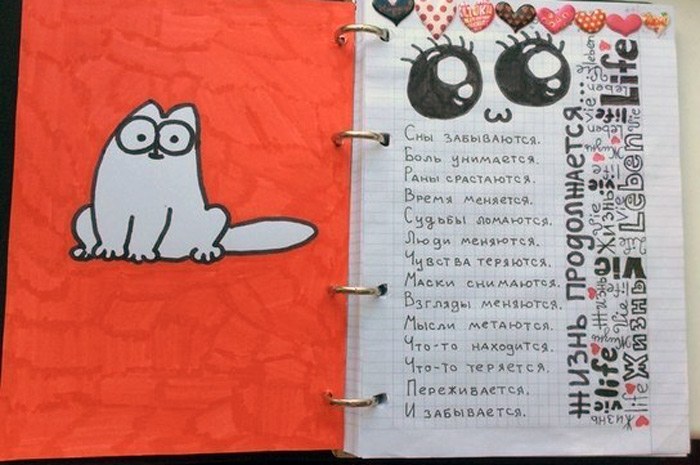 Сны забываются.
Боль унимается.
Раны срастаются.
Время меняется.
Судьбы ломаются.
Люди меняются.
Чувства теряются.
Маски снимаются.
Взгляды меняются.
Мысли метаются.
Что-то находится.
Что-то теряется.
Переживается.
И забывается.
Жизнь продолжается...
Life
Leben
Жизнь
vie
life